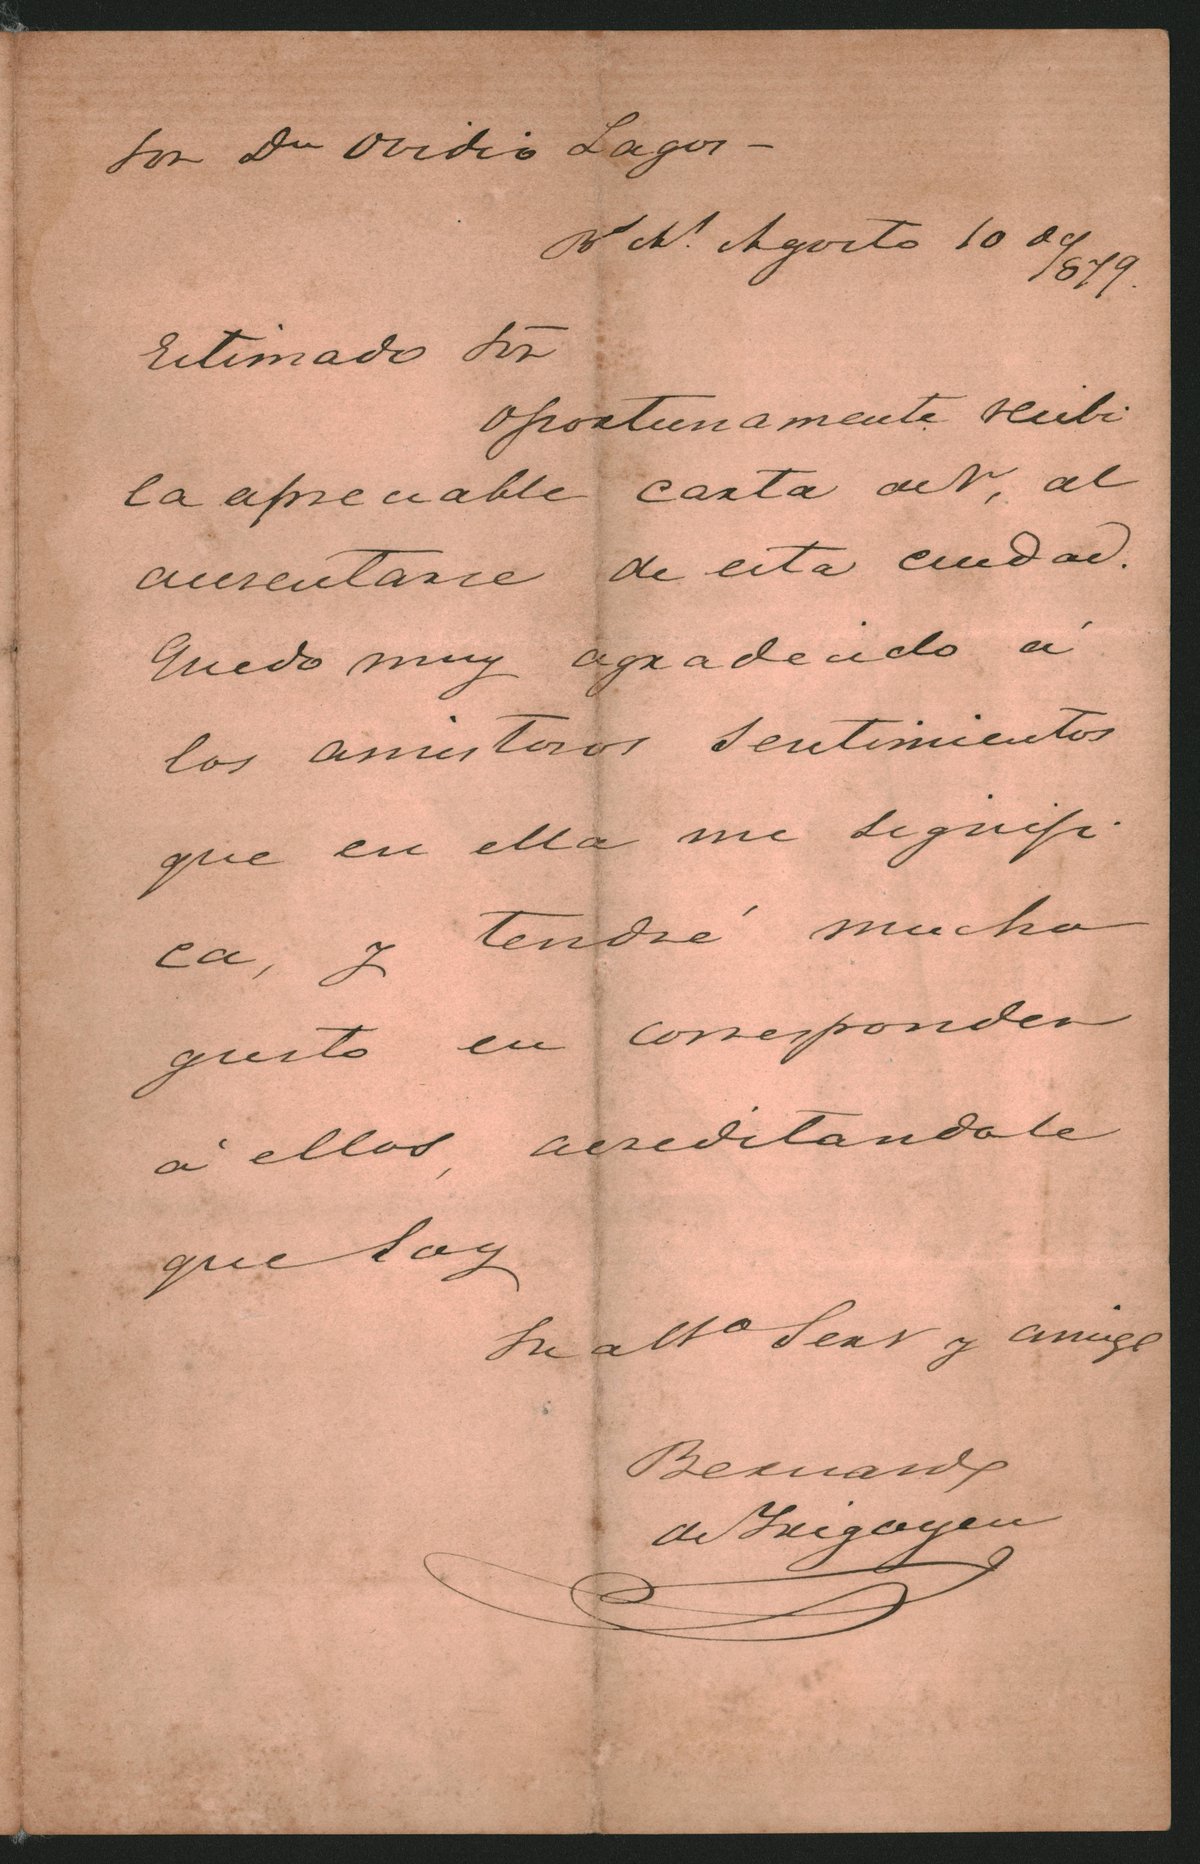 Sor Dn Ovidio Lagos –
Bs As. Agosto 10 de
/879.
Estimado Sor
Oportunamente recibi
la apreciable carta de V, al
ausentarse de esta ciudad.
Quedo muy agradecido á
los amistosos sentimientos
que en ella me signifi-
ca, y tendré mucho
gusto en corresponder
á ellos, acreditandole
que soy
Su atto Serv y amigo
Bernardo
de Irigoyen